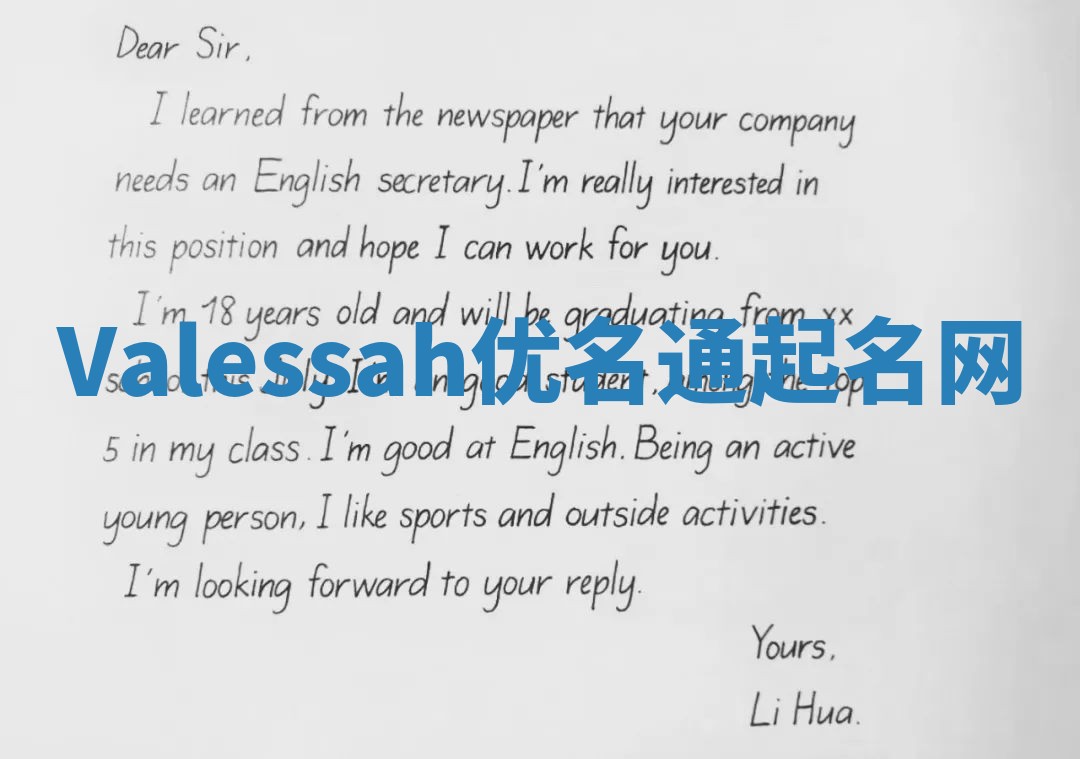 Dear Sir,
I learned from the newspaper that your company
needs an English secretary. I'm really interested in
this position and hope I can work for you.
I'm 18 years old and will be graduating from xx
Valessah优名通起名网
this July. I'm good student, among the top
5 in my class. I'm good at English. Being an active
young person, I like sports and outside activities.
I'm looking forward to your reply.
Yours,
Li Hua.